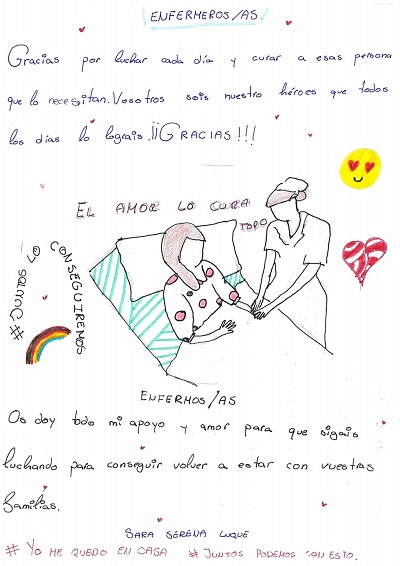 ENFERMEROS/AS
Gracias por luchar cada día y curar a esas persona
que lo necesitan. Vosotros sois nuestro héroes que todos
los días lo lograis. ¡¡GRACIAS!!!
EL AMOR LO CURA
TODO
# JUNTOS LO
CONSEGUIREMOS
ENFERMOS/AS
Os doy todo mi apoyo y amor para que sigais
luchando para conseguir volver a estar con vuestras
familias.
SARA SERENA LUQUE
# YO ME QUEDO EN CASA # JUNTOS PODEMOS CON ESTO.